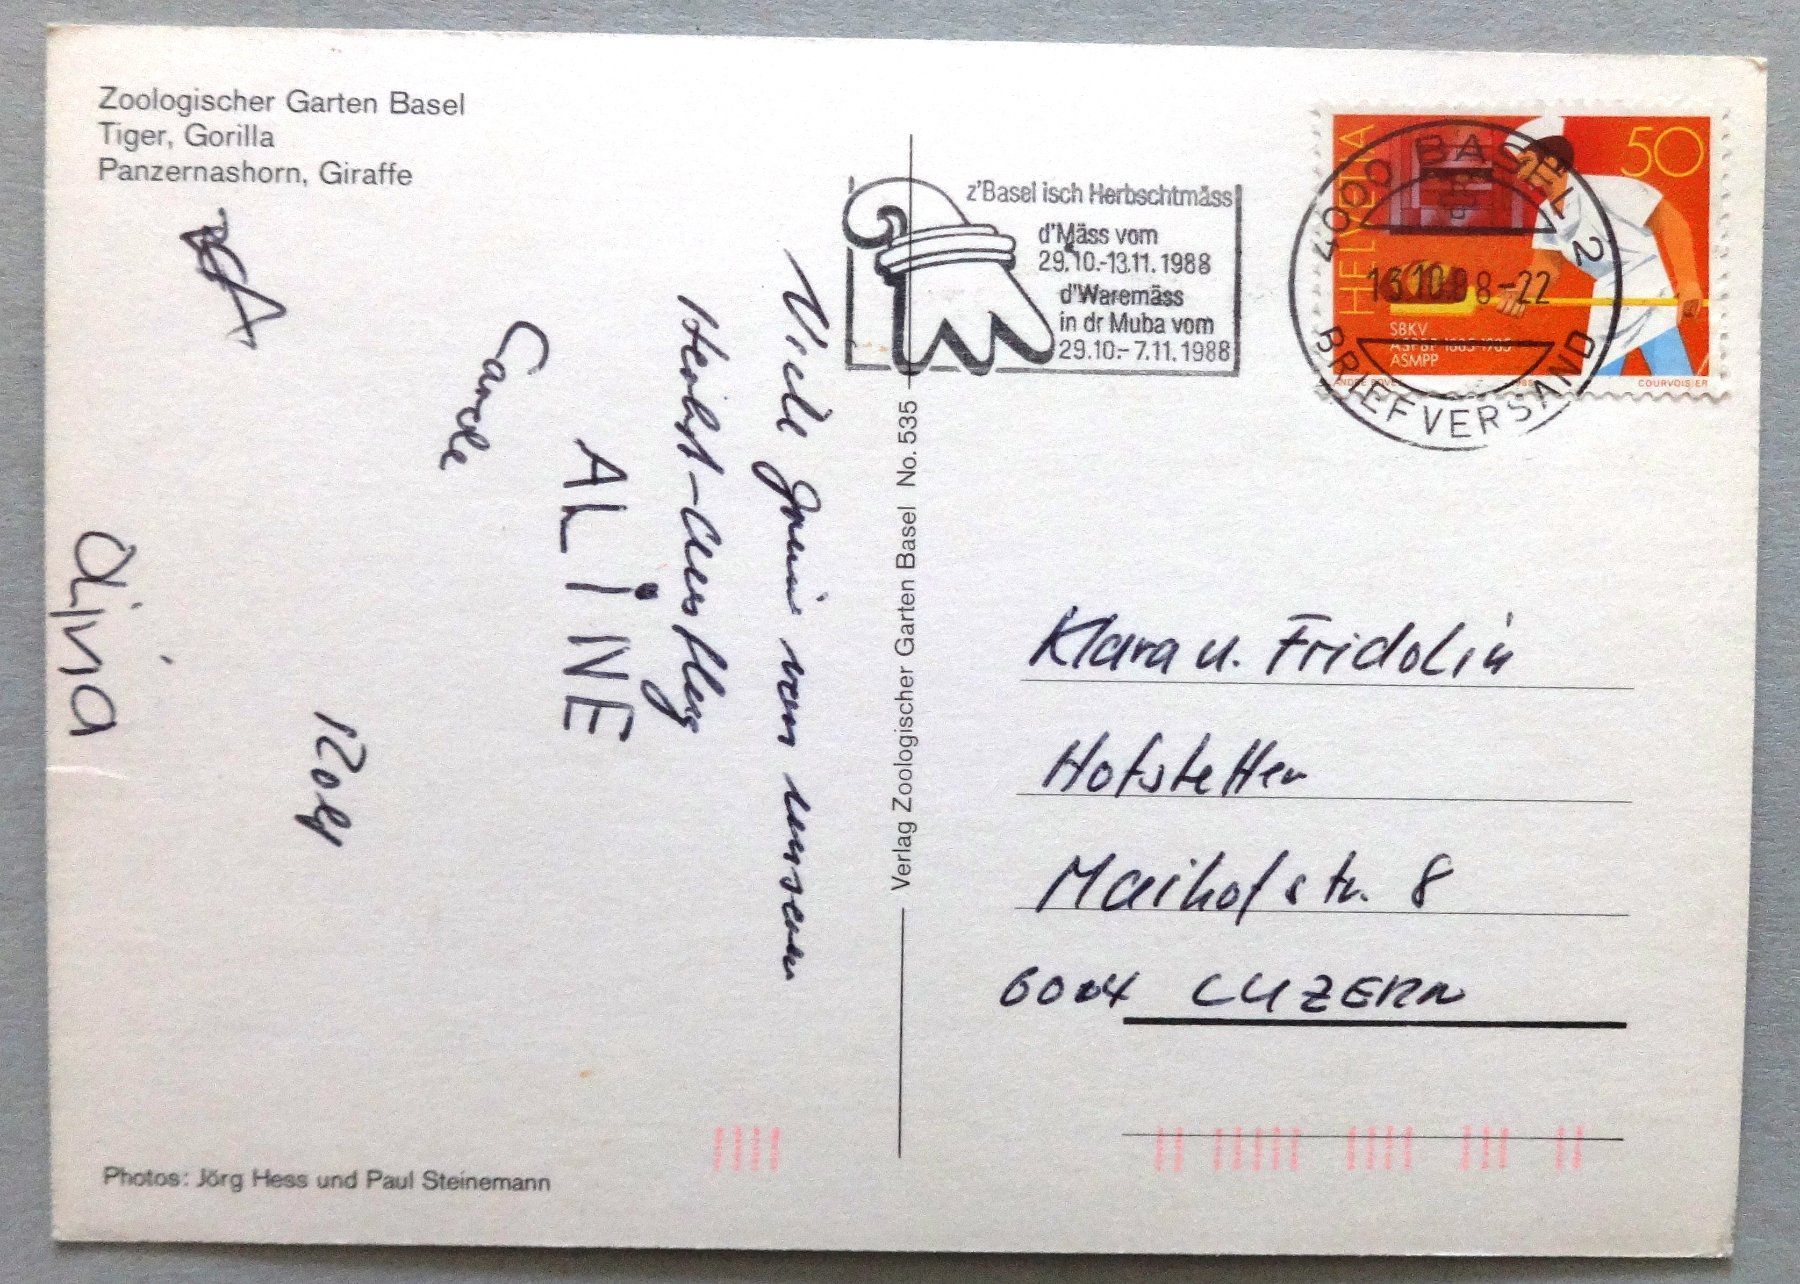 Zoologischer Garten Basel
Tiger, Gorilla
Panzernashorn, Giraffe
z'Basel isch Herbschtmäss
d'Mäss vom
29.10.-13.11.1988
d'Waremäss
in dr Muba vom
29.10.- 7.11.1988
HELVETIA
50
SBKV
ASPBP 1885-1985
ASMPP
COURVOISIER
4000 BASEL 2
-22
BRIEFVERSAND
Viele Grüsse von unserem
Herbst-Ausflug
ALiNE
Carole
Rolf
olivia
Verlag Zoologischer Garten Basel No. 535
Klara u. Fridolin
Hofstetter
Maihofstr. 8
6004 LUZERN
Photos: Jörg Hess und Paul Steinemann